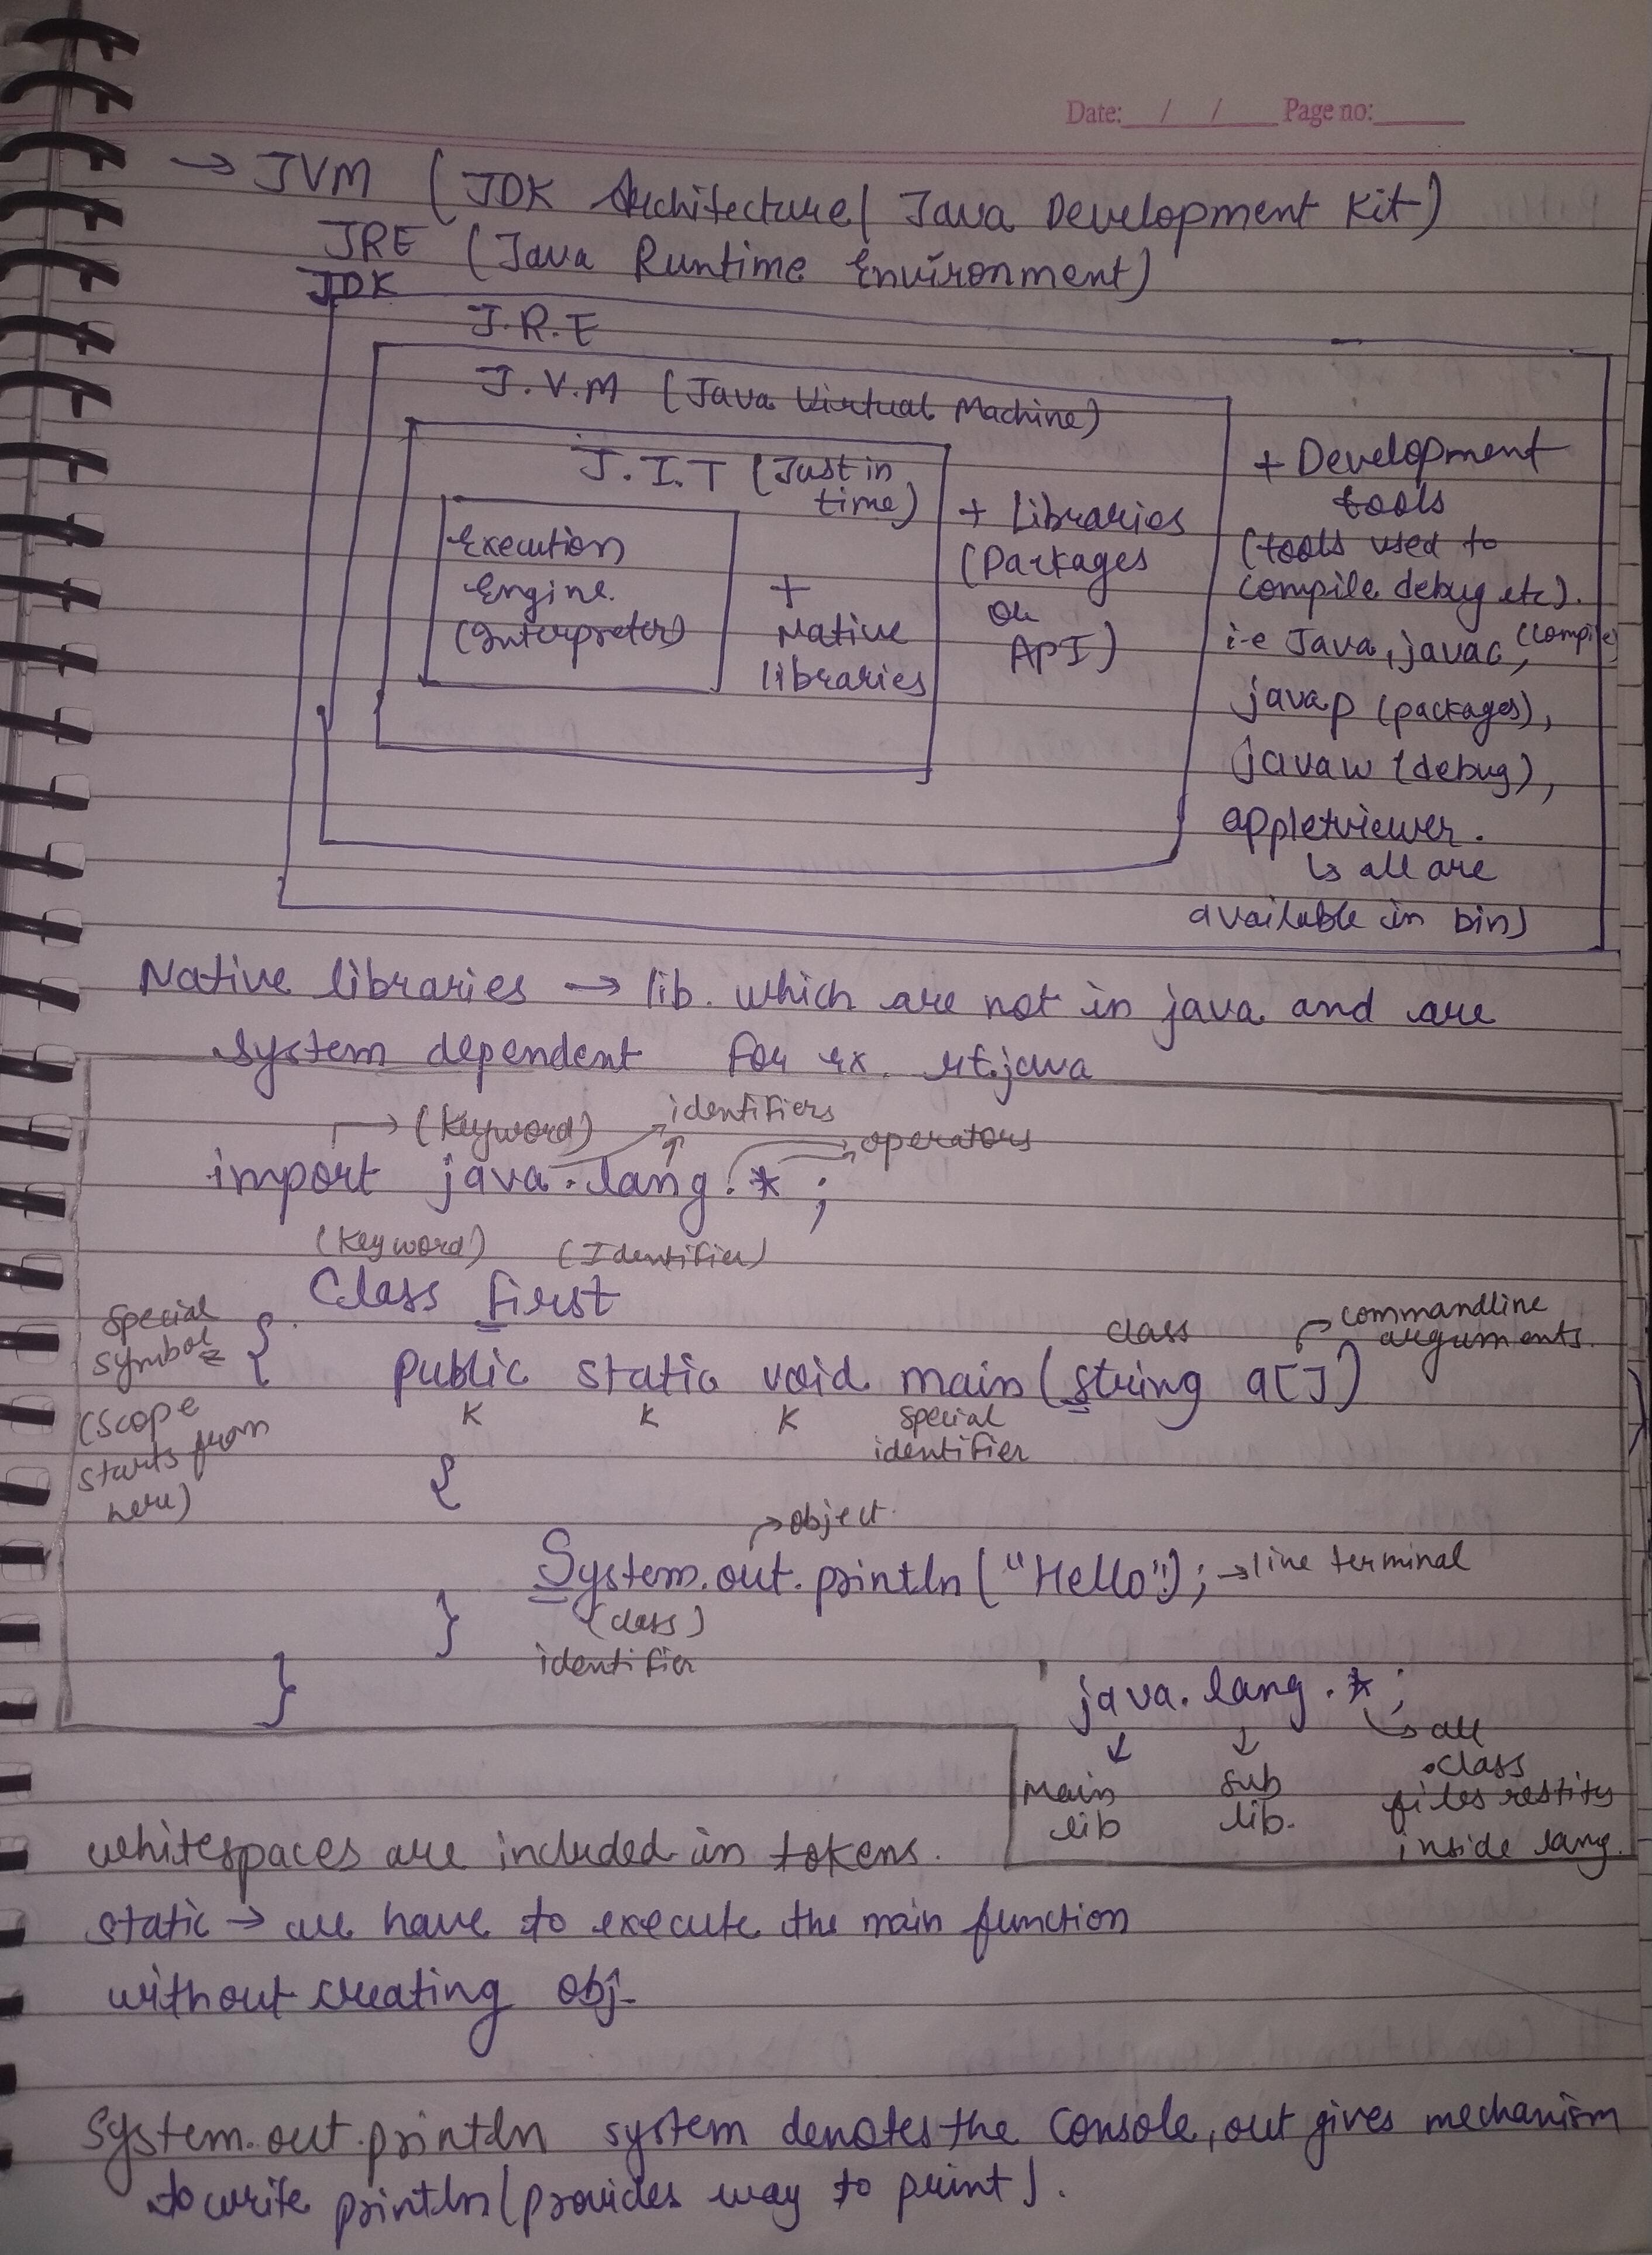 Date: __/__/__ Page no: ____
→ JVM ( JDK Architecture ( Java Development Kit)
JRE ( Java Runtime Environment)
JDK
J.R.E
J.V.M (Java Virtual Machine)
J.I.T (Just in
time)
Execution
Engine
(Interpreter)
+
Native
libraries
+ Libraries
(Packages
or
API)
+ Development
tools
(tools used to
compile debug etc).
i.e Java, javac, (compile)
javap (packages),
javaw (debug),
appletviewer.
↳ all are
available in bin)
Native libraries → lib. which are not in java and are
system dependent for ex. rt.java
→ (keyword) identifiers
operators
import java.lang.*;
(keyword) (Identifier)
Class first
special
symbol {
(scope
starts from
here)
class → commandline
arguments.
public static void main (string a[])
K K K special
identifier
{
→ object
System.out.println("Hello"); → line terminal
(class)
identifier
}
}
java.lang.*;
↓ ↓ ↳ all
main sub .class
lib lib. files
inside lang.
whitespaces are included in tokens.
static → we have to execute the main function
without creating obj.
System.out.println system denotes the console, out gives mechanism
to write println (provides way to print).